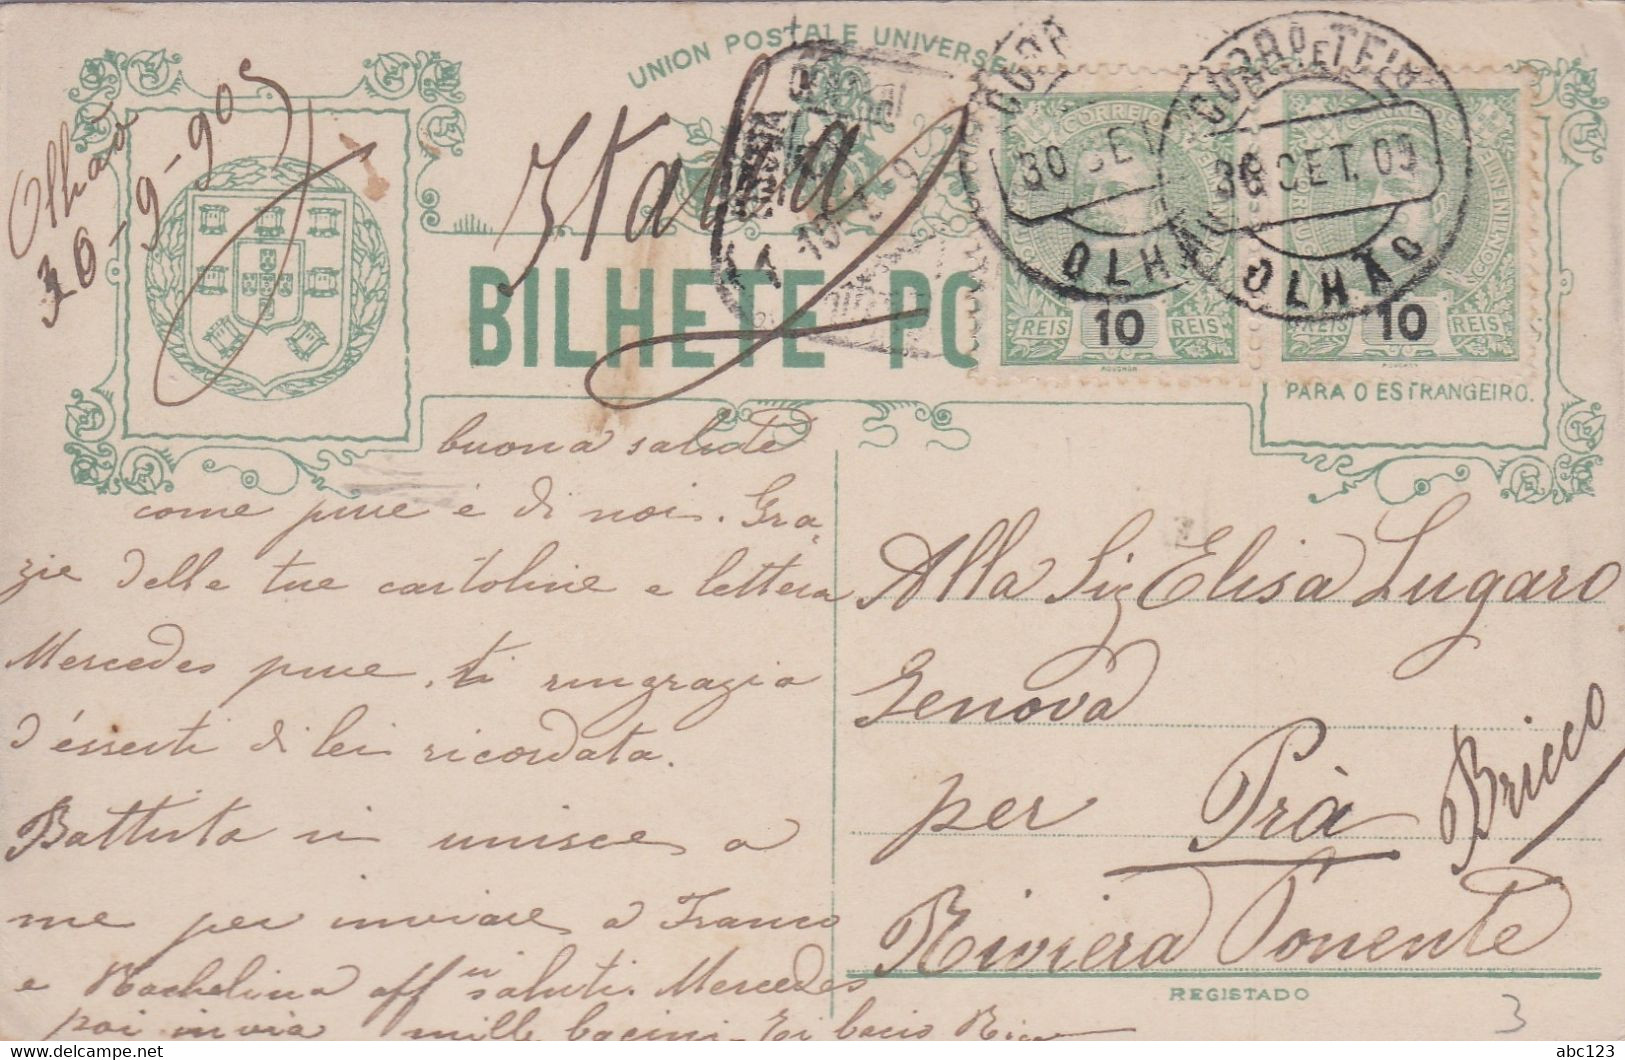 UNION POSTALE UNIVERSE
Olhaõ
30-9-905
Italia
BILHETE PO
CORREIO
CORREIOS
CORREIO E TELEG
30 SET
30 SET. 05
OLHÃO
OLHÃO
REIS 10 REIS
REIS 10 REIS
MOUCHON
MOUCHON
PARA O ESTRANGEIRO.
buona salute
come pure è di noi. Gra
zie delle tue cartoline e lettera
Mercedes pure, ti ringrazia
d'esserti di lei ricordata.
Battista si unisce a
me per inviare a Franco
e Rachelina affni saluti. Mercedes
poi invia mille bacini. Ti bacio
Alla Sig Elisa Lugaro
Genova
per Prà Bricco
Riviera Ponente
REGISTADO
3
abc123